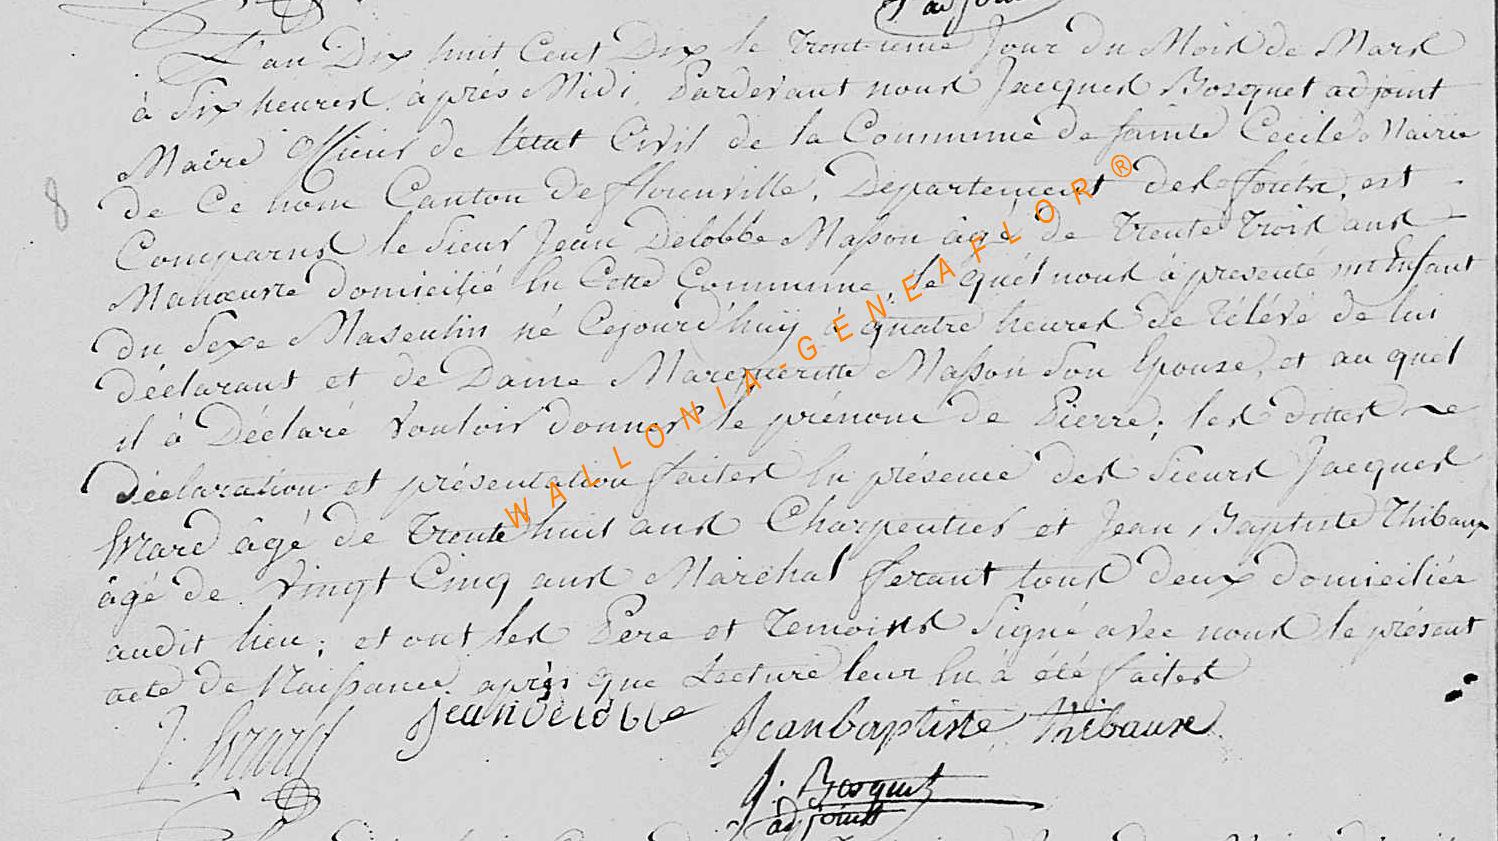 adjoint
L'an Dix huit Cent Dix le trent-uême Jour du Mois de Mars
à Six heures après Midi, Pardevant nous Jacques Bosquet adjoint
Maire Officier de l'etat Civil de la Commune de sainte Cecile Mairie
8
de Ce nom Canton de florenville, Departement des foréts, est
Comparus le Sieur Jean Delobbé Masson âgé de Trente Trois ans
Manœuvre domicilié En Cette Commune, le quel nous à presenté un Enfant
du Sexe Masculin né Cejourd'huy à quatre heures de rélévé de lui
déclarant et de Dame Margueritte Masson Son Epouse, et au quel
il à Déclaré Vouloir donner le prénom de Pierre; les dittes
Déclaration et présentation faites En présence des Sieurs Jacques
Evrard âgé de Trente huit ans Charpentier et Jean Baptiste Thibaux
âgé de Vingt Cinq ans Maréhal ferant tous deux domiciliés
audit lieu; et ont les Pere et Temoins Signé avec nous le présent
acte de Naissance après que Lecture leur En à été faites
J. Evrard Jean Delobbe Jean baptiste Thibaux
J. Bosquet
adjoint
WALLONIA-GENEAFLOR®